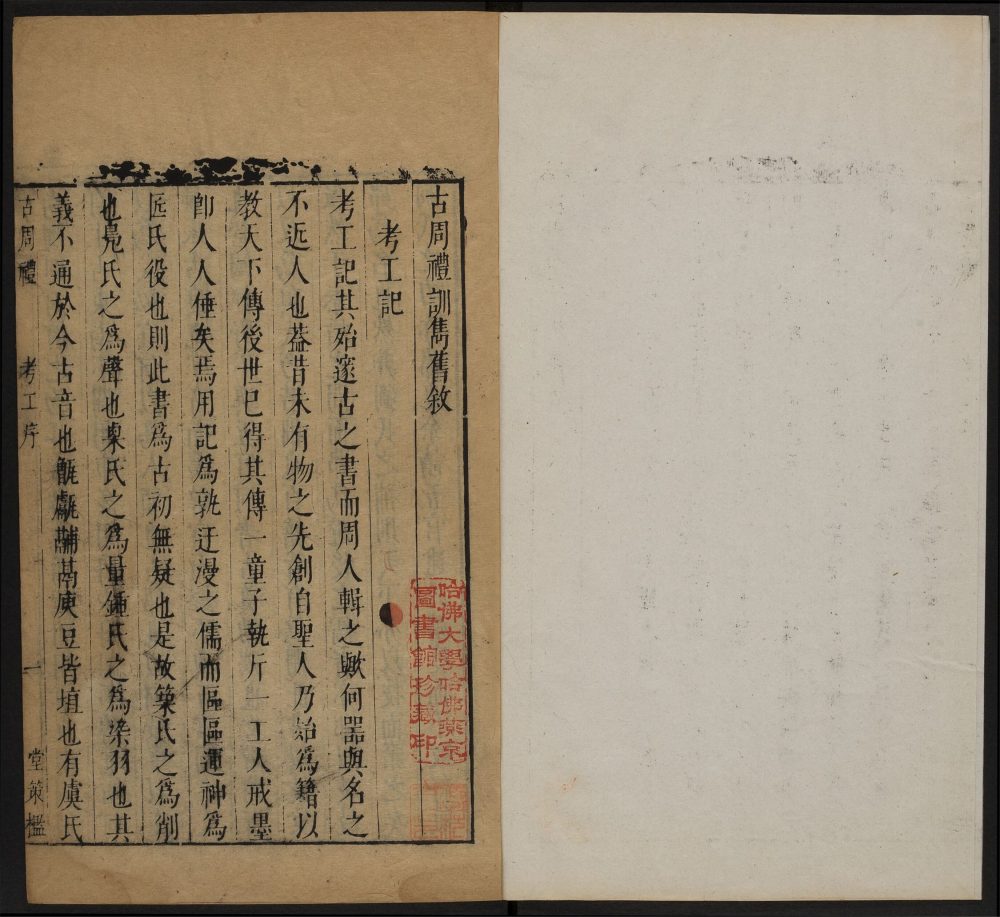 古周禮訓雋舊敘
考工記
考工記其殆邃古之書而周人輯之歟何器與名之
不近人也葢昔未有物之先創自聖人乃始爲籍以
教天下傳後世已得其傳一童子執斤一工人戒墨
卽人人倕矣焉用記爲孰迂漫之儒而區區運神爲
匠氏役也則此書爲古初無疑也是故築氏之爲削
也鳧氏之爲聲也㮚氏之爲量鍾氏之爲染羽也其
義不通於今古音也甗鬳鬴鬲庾豆皆埴也有虞氏
古周禮 考工序 一 堂策檻
哈佛大學哈佛燕京
圖書館珍藏印